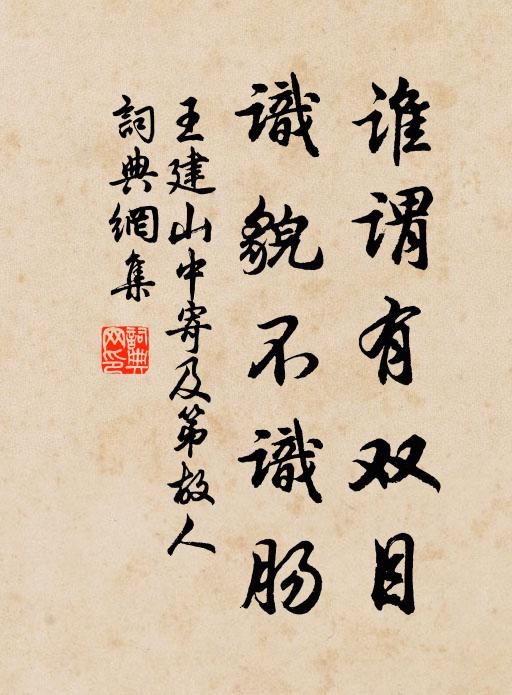 谁谓有双目
識貌不識肠
王建山中寄及第故人
詞典網集
詞典
网印